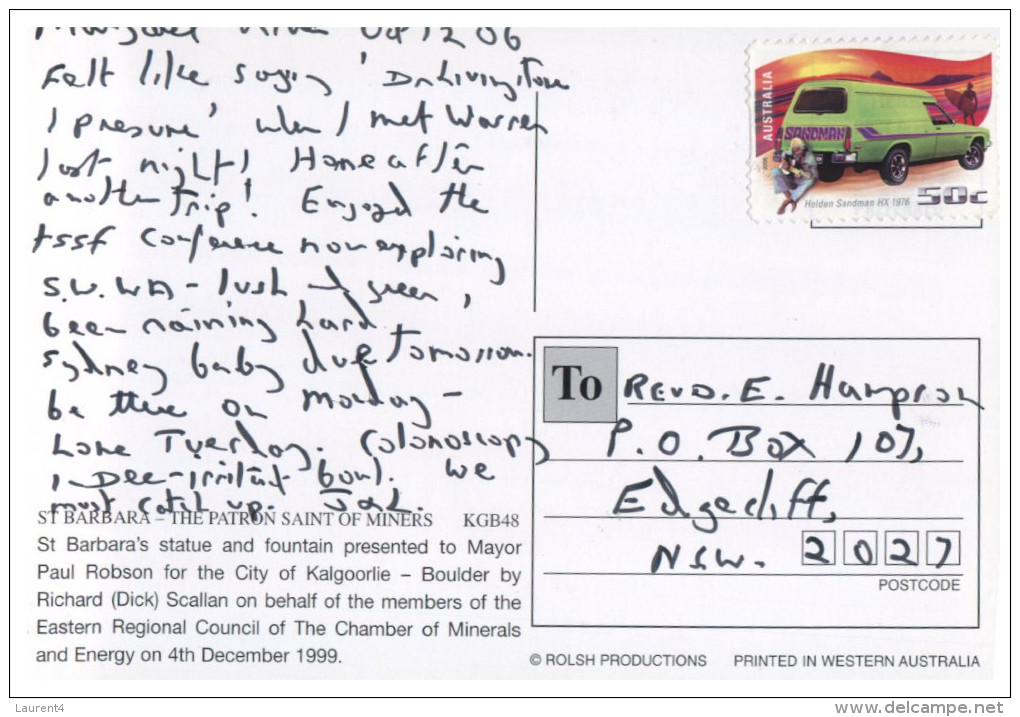 Margaret River
Felt like saying 'Dr Livingstone
I presume' when I met Warren
last night! Home after
another trip! Enjoyed the
tssf Conference now exploring
S.W. WA - lush & green,
been raining hard.
Sydney baby due tomorrow.
be there on Monday -
home Tuesday. Colonoscopy
1 Dec - irritant bowl. We
must catch up.
ST BARBARA – THE PATRON SAINT OF MINERS KGB48
St Barbara's statue and fountain presented to Mayor
Paul Robson for the City of Kalgoorlie – Boulder by
Richard (Dick) Scallan on behalf of the members of the
Eastern Regional Council of The Chamber of Minerals
and Energy on 4th December 1999.
AUSTRALIA
SANDMAN
Holden Sandman HX 1976
50c
To
REVD. E. Hampson
P.O. Box 107,
Edgecliff,
NSW. 2027
POSTCODE
© ROLSH PRODUCTIONS PRINTED IN WESTERN AUSTRALIA
Laurent4
www.delcampe.net